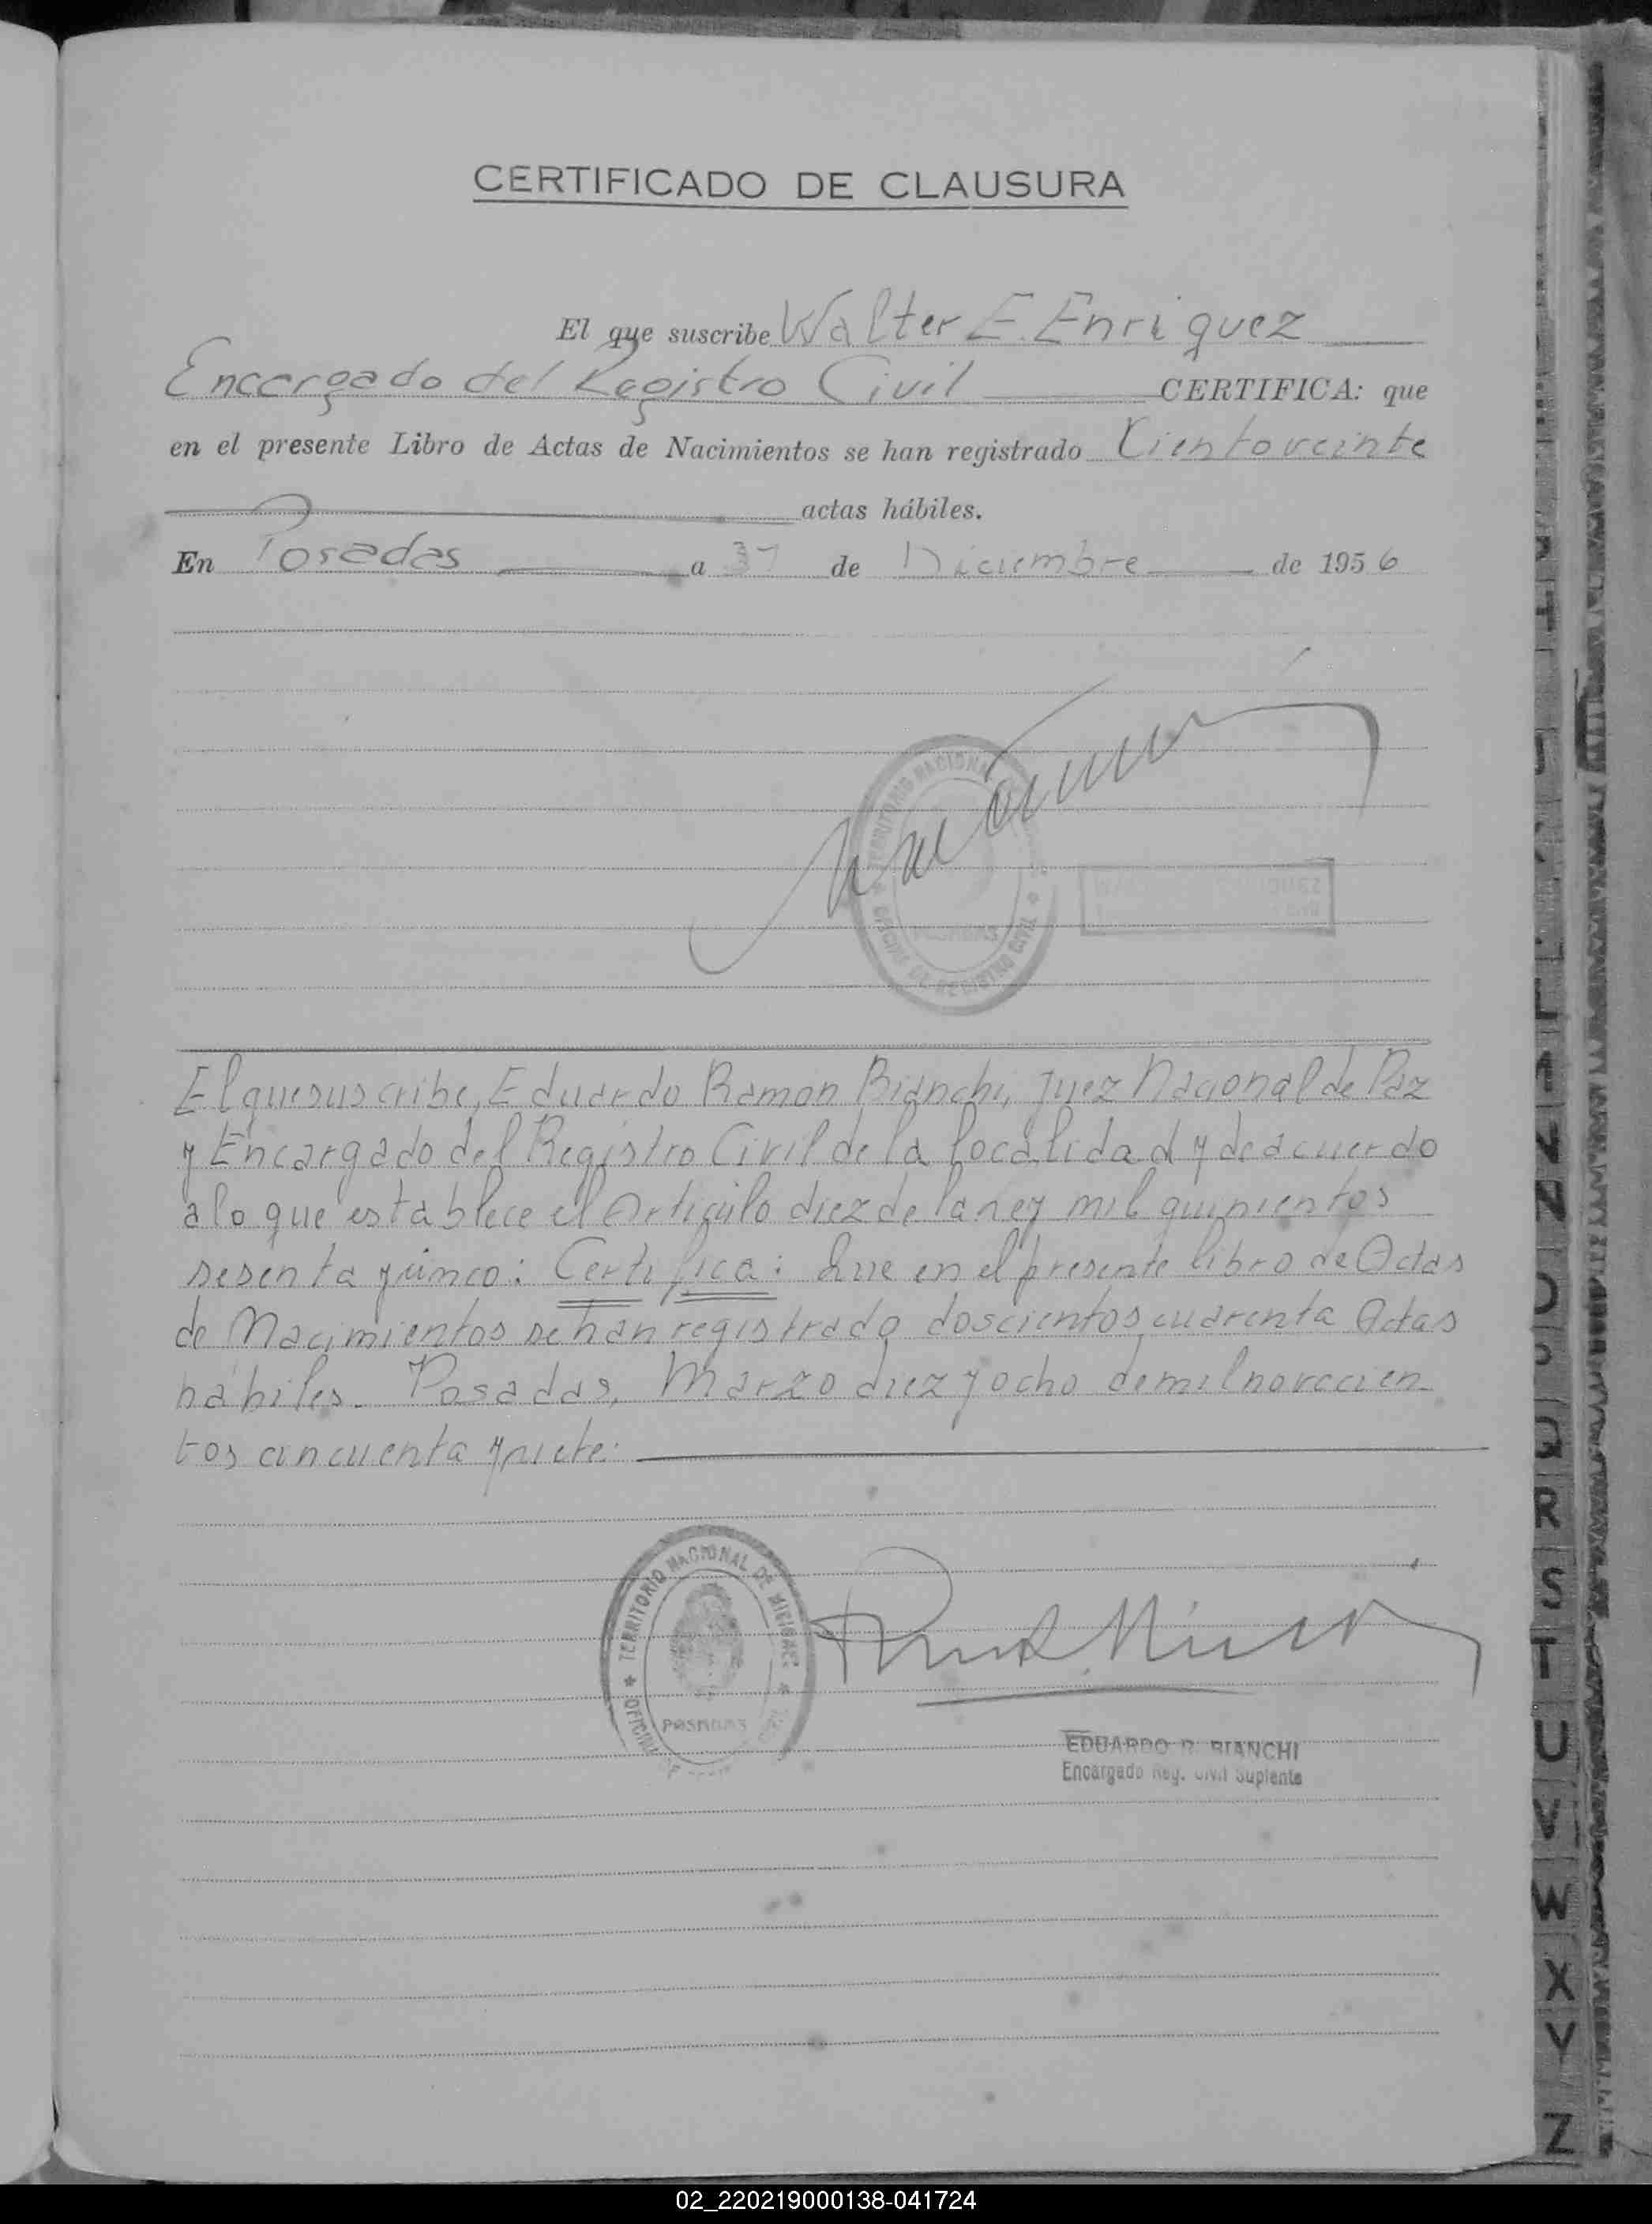 CERTIFICADO DE CLAUSURA
El que suscribe Walter E. Enriquez
Encargado del Registro Civil CERTIFICA: que
en el presente Libro de Actas de Nacimientos se han registrado Ciento veinte
actas hábiles.
En Posadas a 31 de Diciembre de 1956
TERRITORIO NACIONAL
OFICINA DE REGISTRO CIVIL
POSADAS
El que suscribe, Eduardo Ramon Bianchi, Juez Nacional de Paz
y Encargado del Registro Civil de la localidad y de acuerdo
a lo que establece el Articulo diez de la Ley mil quinientos
sesenta y cinco: Certifica: Que en el presente libro de Actas
de Nacimientos se han registrado doscientos cuarenta Actas
hábiles. Posadas, Marzo diez y ocho de mil novecien
tos cincuenta y siete:
TERRITORIO NACIONAL DE MISIONES
OFICINA
POSADAS
EDUARDO R. BIANCHI
Encargado Reg. Civil Suplente
N
O
P
Q
R
S
T
U
V
W
X
Y
Z
02_220219000138-041724